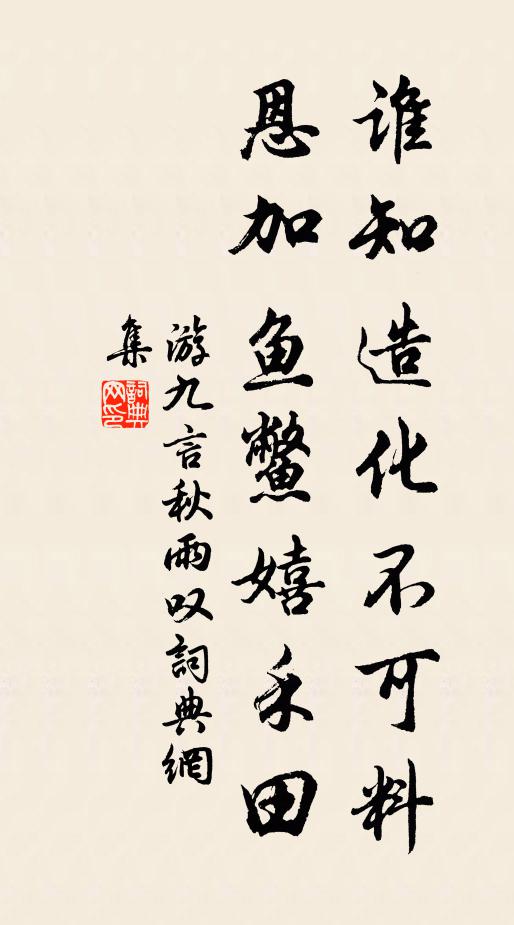 谁知造化不可料
恩加鱼鳖嬉禾田
游九言秋雨叹詞典網
集
詞典
网印